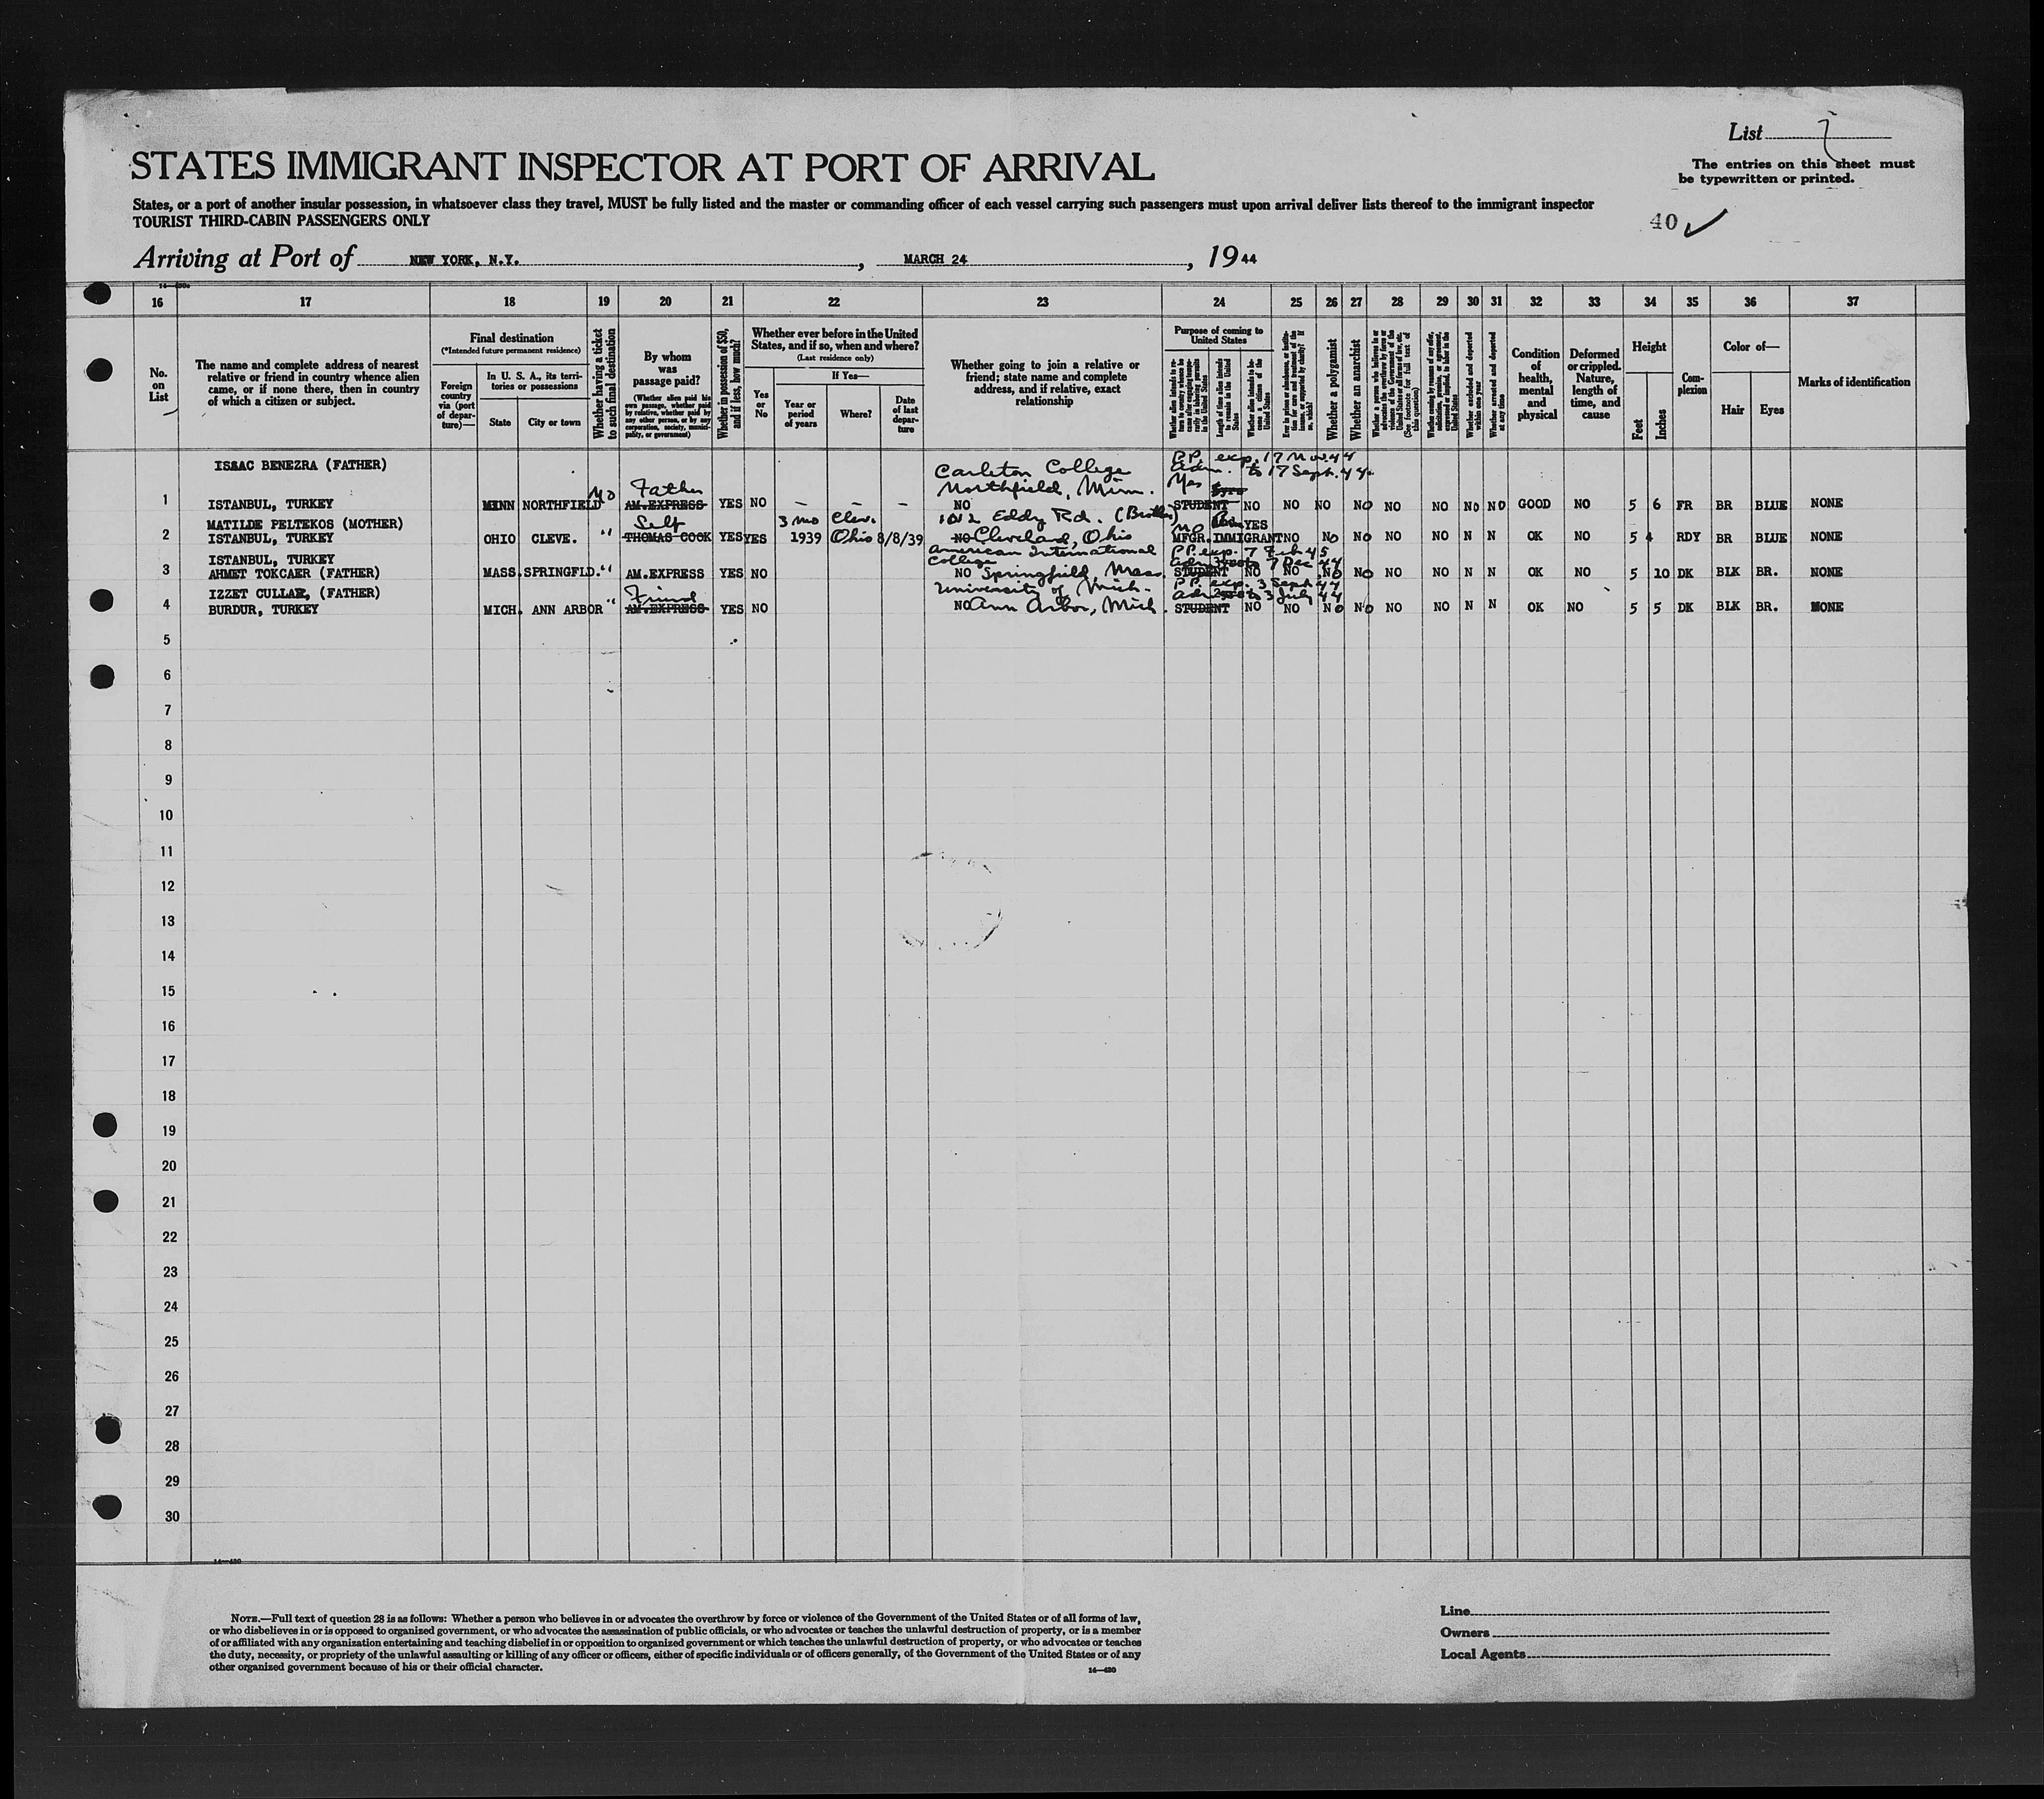 List 7
The entries on this sheet must
be typewritten or printed.
STATES IMMIGRANT INSPECTOR AT PORT OF ARRIVAL
States, or a port of another insular possession, in whatsoever class they travel, MUST be fully listed and the master or commanding officer of each vessel carrying such passengers must upon arrival deliver lists thereof to the immigrant inspector
TOURIST THIRD-CABIN PASSENGERS ONLY
40 ✓
Arriving at Port of NEW YORK, N.Y., MARCH 24, 1944
16 17 18 19 20 21 22 23 24 25 26 27 28 29 30 31 32 33 34 35 36 37
No. on List
The name and complete address of nearest
relative or friend in country whence alien
came, or if none there, then in country
of which a citizen or subject.
Final destination
(*Intended future permanent residence)
Foreign country via (port of departure)—
In U. S. A., its territories or possessions
State
City or town
Whether having a ticket to such final destination
By whom was passage paid?
(Whether alien paid his own passage, whether paid by relative, whether paid by any other person, or by any corporation, society, municipality, or government)
Whether in possession of $50, and if less, how much?
Whether ever before in the United States, and if so, when and where?
(Last residence only)
Yes or No
If Yes—
Year or period of years
Where?
Date of last departure
Whether going to join a relative or
friend; state name and complete
address, and if relative, exact
relationship
Purpose of coming to United States
Whether alien intends to return to country whence he came after engaging temporarily in laboring pursuits in the United States
Length of time alien intends to remain in the United States
Whether alien intends to become a citizen of the United States
Whether a polygamist
Whether an anarchist
Whether excluded and deported within one year
Whether arrested and deported at any time
Condition of health, mental and physical
Deformed or crippled. Nature, length of time, and cause
Height
Feet
Inches
Complexion
Color of—
Hair
Eyes
Marks of identification
ISAAC BENEZRA (FATHER) Carleton College P.P. exp. 17 Nov. 44
Father Northfield, Minn. Adm. to 17 Sept. 44
Yes
1 ISTANBUL, TURKEY MINN NORTHFIELD No AM.EXPRESS YES NO – – – NO STUDENT NO NO NO NO NO NO NO NO GOOD NO 5 6 FR BR BLUE NONE
MATILDE PELTEKOS (MOTHER) Self 3 mo Clev. 1012 Eddy Rd. (Brother) No YES
2 ISTANBUL, TURKEY OHIO CLEVE. " THOMAS COOK YES YES 1939 Ohio 8/8/39 NO Cleveland, Ohio MFGR. IMMIGRANT NO NO NO NO NO N N OK NO 5 4 RDY BR BLUE NONE
ISTANBUL, TURKEY American International College P.P. exp. 7 Feb 45
3 AHMET TOKCAER (FATHER) MASS. SPRINGFLD. " AM.EXPRESS YES NO NO Springfield, Mass. Adm to 7 Dec 44 STUDENT NO NO NO NO NO NO N N OK NO 5 10 DK BLK BR. NONE
IZZET CULLAR, (FATHER) Friend University of Mich. P.P. exp. 3 Sept 44
4 BURDUR, TURKEY MICH. ANN ARBOR " AM.EXPRESS YES NO NO Ann Arbor, Mich. Adm to 3 July 44 STUDENT NO NO NO NO NO NO N N OK NO 5 5 DK BLK BR. NONE
5
6
7
8
9
10
11
12
13
14
15
16
17
18
19
20
21
22
23
24
25
26
27
28
29
30
14—420
NOTE.—Full text of question 28 is as follows: Whether a person who believes in or advocates the overthrow by force or violence of the Government of the United States or of all forms of law,
or who disbelieves in or is opposed to organized government, or who advocates the assassination of public officials, or who advocates or teaches the unlawful destruction of property, or is a member
of or affiliated with any organization entertaining and teaching disbelief in or opposition to organized government or which teaches the unlawful destruction of property, or who advocates or teaches
the duty, necessity, or propriety of the unlawful assaulting or killing of any officer or officers, either of specific individuals or of officers generally, of the Government of the United States or of any
other organized government because of his or their official character.
14—420
Line
Owners
Local Agents